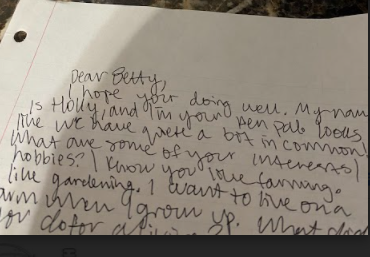 Dear Betty,
I hope your doing well. My nam
is Holly, and I'm your Pen pal. looks
like we have quite a bit in common!
What are some of your interests/
hobbies? I know you love farming.
like gardening. I want to live on a
arm when I grow up. What did
you do for a